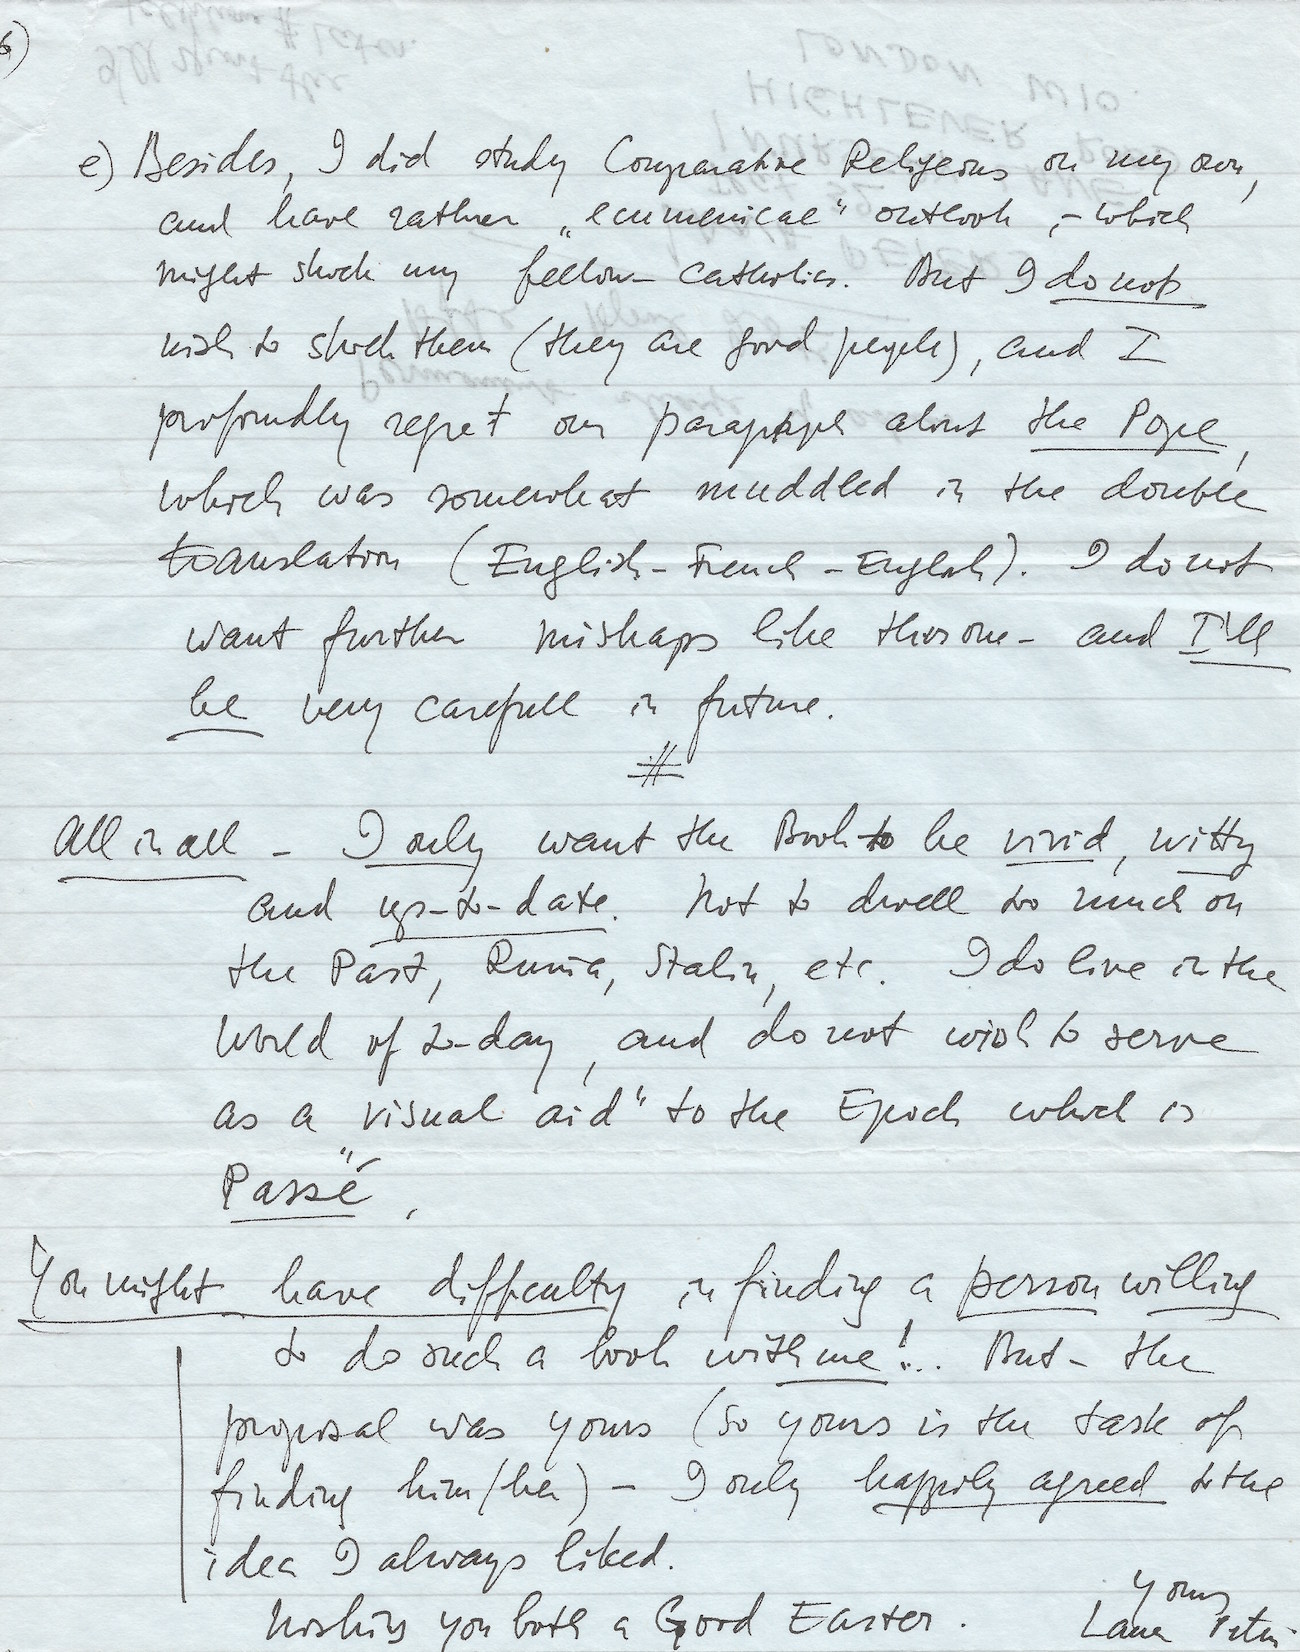 6)
e) Besides, I did study Comparative Religions on my own,
and have rather „ecumenical“ outlook, – which
might shock my fellow-catholics. But I do not
wish to shock them (they are good people), and I
profoundly regret our paragraph about the Pope,
which was somewhat muddled in the double
translation (English-French-English). I do not
want further mishaps like this one – and I'll
be very carefull in future.
#
All in all – I only want the Book to be vivid, witty
and up-to-date. Not to dwell too much on
the Past, Russia, Stalin, etc. I do live in the
World of to-day, and do not wish to serve
as a „visual aid“ to the Epoch which is
Passé.
You might have difficulty in finding a person willing
to do such a book with me!.. But – the
proposal was yours (so yours is the task of
finding him/her) – I only happily agreed to the
idea I always liked.
Wishing you both a Good Easter.
Yours
Lana Peters